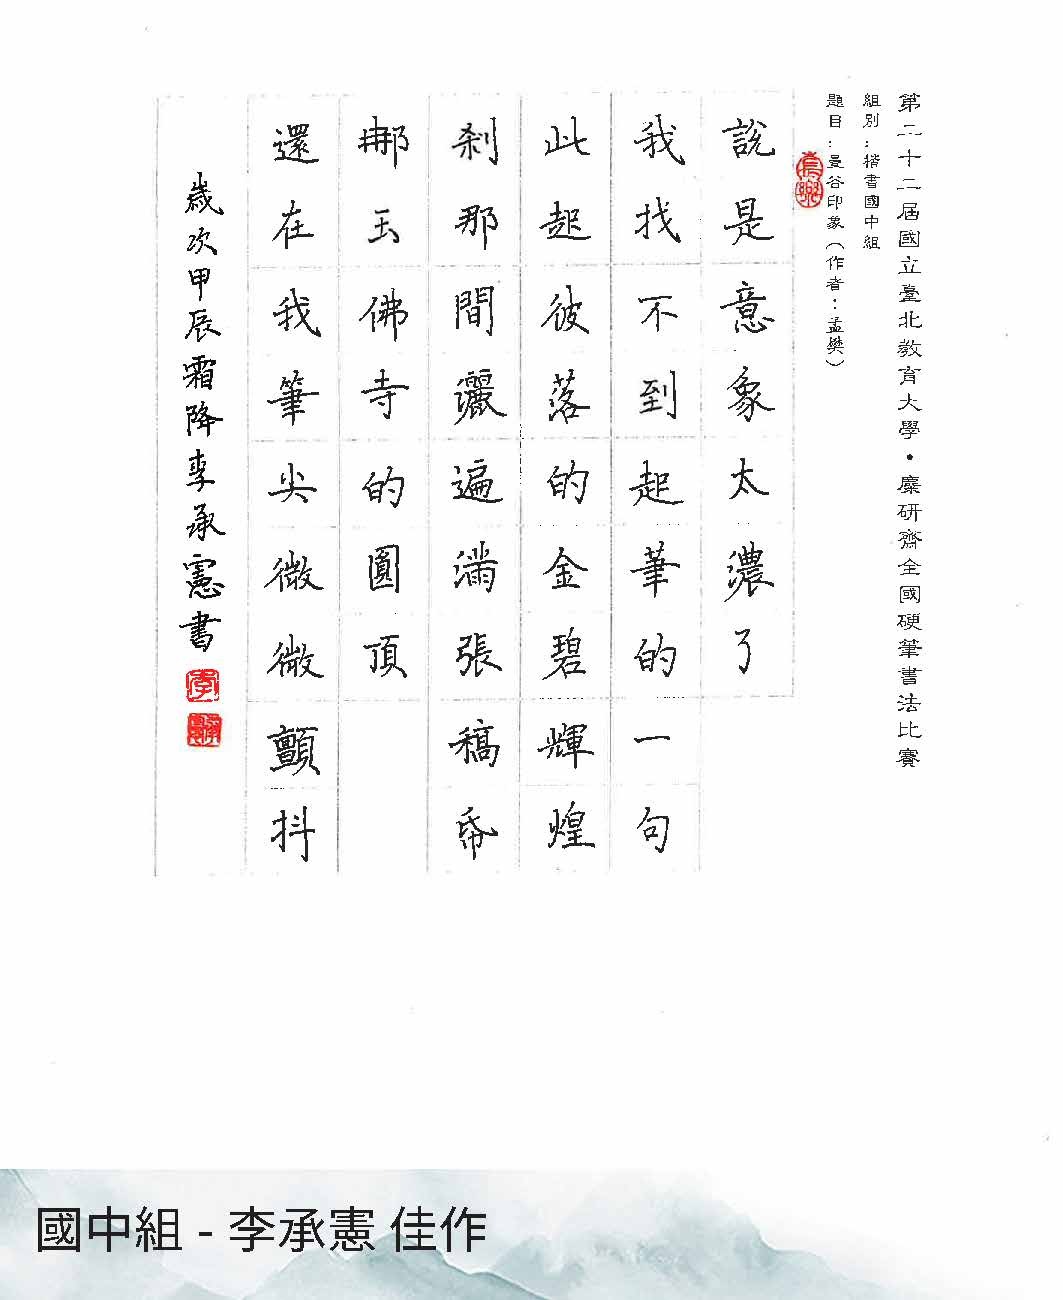 第二十二屆國立臺北教育大學•麋研齋全國硬筆書法比賽
組別：楷書國中組
題目：曼谷印象（作者：孟樊）
說是意象太濃了
我找不到起筆的一句
此起彼落的金碧輝煌
剎那間灑遍滿張稿帋
那玉佛寺的圓頂
還在我筆尖微微顫抖
歲次甲辰霜降李承憲書
國中組 - 李承憲 佳作